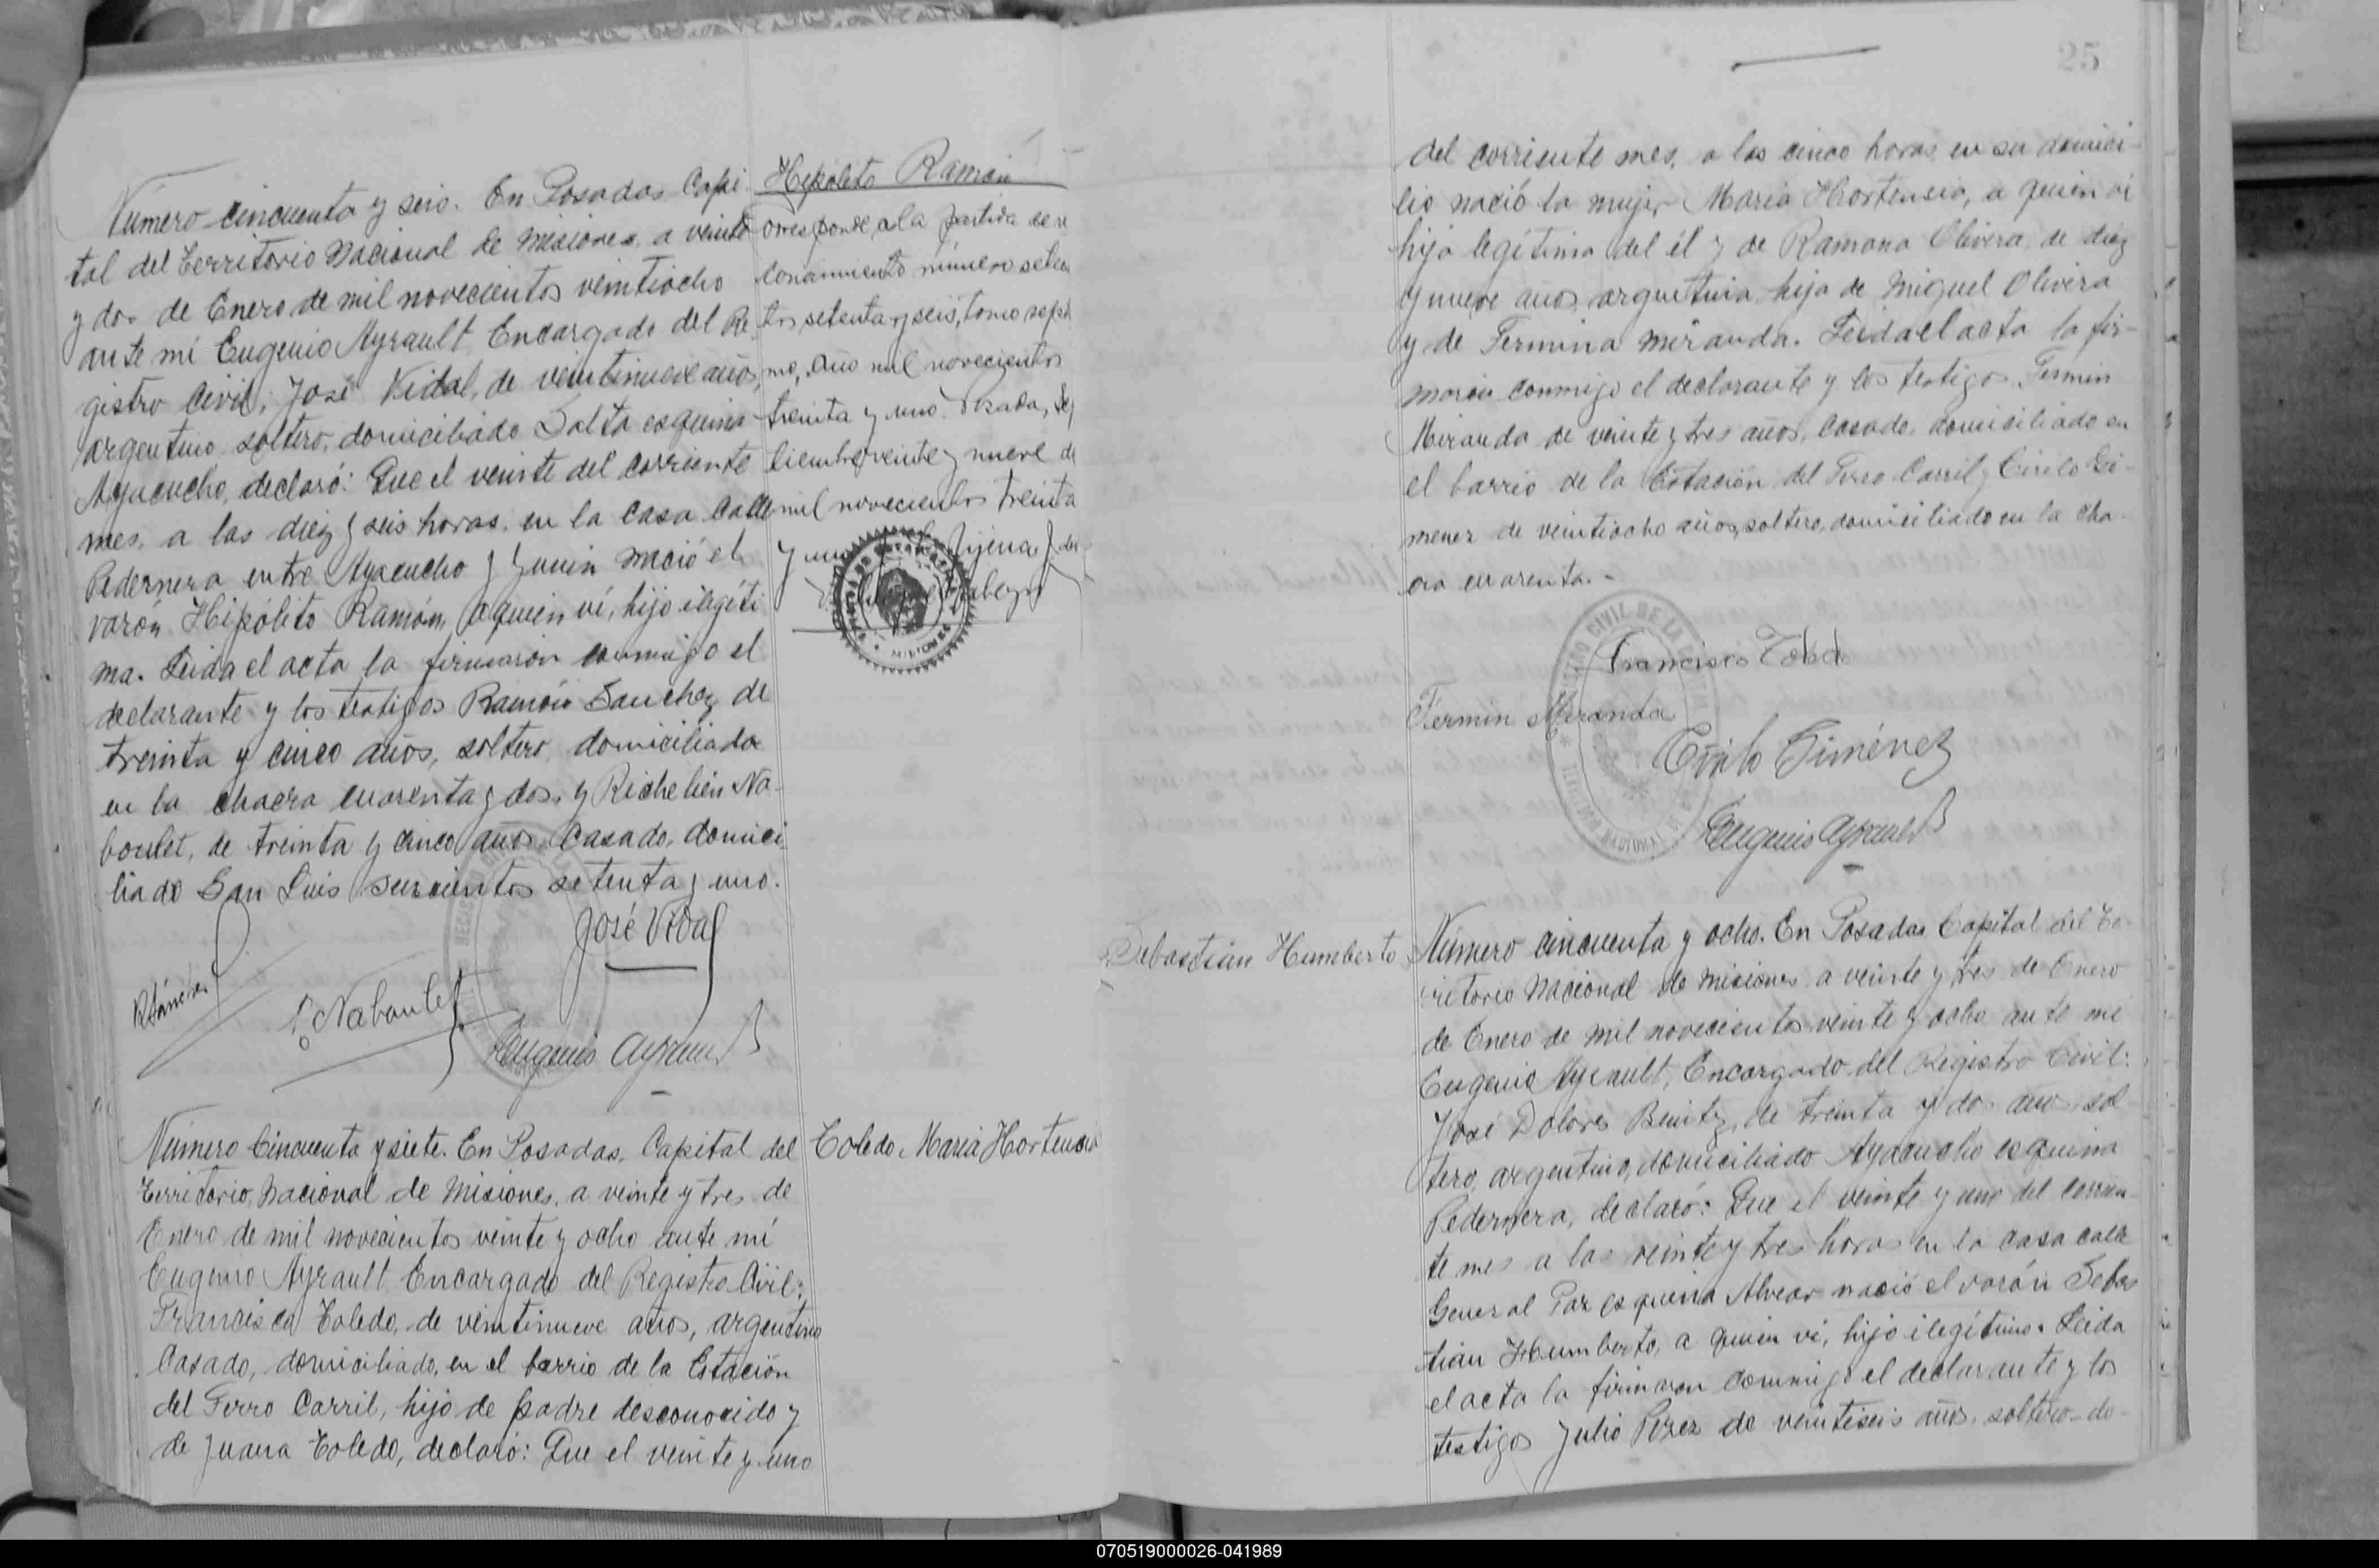 Número cincuenta y seis. En Posadas Capi-
tal del Territorio Nacional de Misiones, a veinte
y dos de Enero de mil novecientos veintiocho
ante mí Eugenio Ayrault, Encargado del Re-
gistro Civil; José Vidal, de veintinueve años,
argentino, soltero, domiciliado Salta esquina
Ayacucho, declaró: Que el veinte del corriente
mes, a las diez y seis horas, en la casa calle
Pedernera entre Ayacucho y Junin nació el
varón Hipólito Ramón, a quien ví, hijo ilegíti
mo. Leida el acta la firmaron conmigo el
declarante y los testigos Ramón Sanchez de
treinta y cinco años, soltero, domiciliado
en la chacra cuarenta y dos, y Richelieu Na-
boulet, de treinta y cinco años, casado, domici
liado San Luis setenta y uno.
José Vidal
Naboulet
Eugenio Ayrault
Hipólito Ramón
orresponde a la partida de re
conocimiento número setecien
tos setenta y seis, tomo sépti
mo, año mil novecientos
treinta y uno. Posadas, Sep
tiembre veinte y nueve de
mil novecientos treinta
y uno
Número Cincuenta y siete. En Posadas, Capital del
Territorio Nacional de Misiones, a veinte y tres de
Enero de mil novecientos veinte y ocho ante mí
Eugenio Ayrault, Encargado del Registro Civil:
Francisco Toledo, de veintinueve años, argentino
Casado, domiciliado, en el barrio de la Estación
del Ferro Carril, hijo de padre desconocido y
de Juana Toledo, declaró: Que el veinte y uno
Toledo, Maria Hortensia
25
del corriente mes, a las cinco horas en su domici-
lio nació la mujer Maria Hortensia, a quien ví
hija legítima del él y de Ramona Olivera, de diez
y nueve años, argentina, hija de Miguel Olivera
y de Fermina Miranda. Leida el acta la fir-
maron conmigo el declarante y los testigos Fermin
Miranda de veinte y tres años, casado, domiciliado en
el barrio de la Estación del Ferro Carril y Cirilo Gi-
menez de veintiocho años, soltero, domiciliado en la cha-
cra cuarenta.-
Francisco Toledo
Fermin Miranda
Cirilo Giménez
Eugenio Ayrault
Sebastián Humberto
Número cincuenta y ocho. En Posadas Capital del Te-
rritorio Nacional de Misiones a veinte y tres de Enero
de Enero de mil novecientos veinte y ocho ante mí
Eugenio Ayrault, Encargado del Registro Civil:
José Dolores Benitez, de treinta y dos años, sol
tero, argentino, domiciliado Ayacucho esquina
Pedernera, declaró: Que el veinte y uno del corrien-
te mes a las veinte y tres horas en la casa calle
General Paz esquina Alvear nació el varón Sebas
tián Humberto, a quien ví, hijo ilegítimo. Leida
el acta la firmaron conmigo el declarante y los
testigos Julio Perez de veintiseis años, soltero do-
070519000026-041989